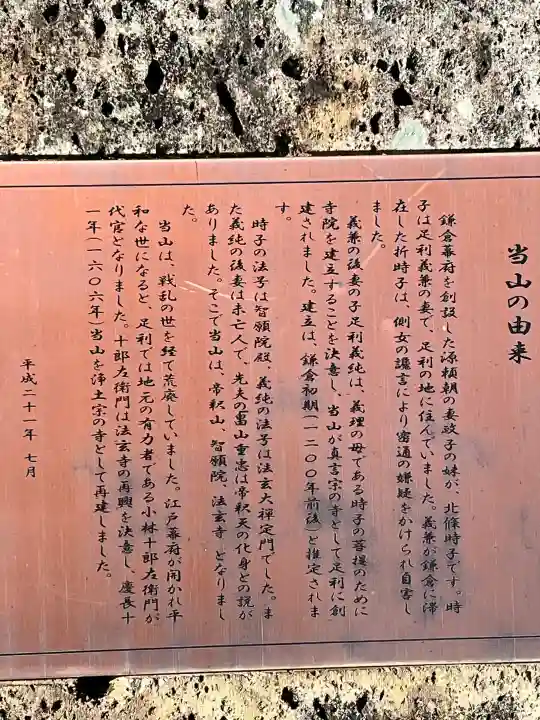 当山の由来
鎌倉幕府を創設した源頼朝の妻政子の妹が、北條時子です。時
子は足利義兼の妻で、足利の地に住んでいました。義兼が鎌倉に滞
在した折時子は、側女の讒言により密通の嫌疑をかけられ自害し
ました。
義兼の後妻の子足利義純は、義理の母である時子の菩提のために
寺院を建立することを決意し、当山が真言宗の寺として足利に創
建されました。建立は、鎌倉初期(一二〇〇年前後)と推定されま
す。
時子の法号は智願院殿、義純の法号は法玄大禅定門でした。ま
た義純の後妻は未亡人で、先夫の畠山重忠は帝釈天の化身との説が
ありました。そこで当山は、帝釈山 智願院 法玄寺 となりまし
た。
当山は、戦乱の世を経て荒廃していました。江戸幕府が開かれ平
和な世になると、足利では地元の有力者である小林十郎左衛門が
代官となりました。十郎左衛門は法玄寺の再興を決意し、慶長十
一年(一六〇六年)当山を浄土宗の寺として再建しました。
平成二十一年 七月